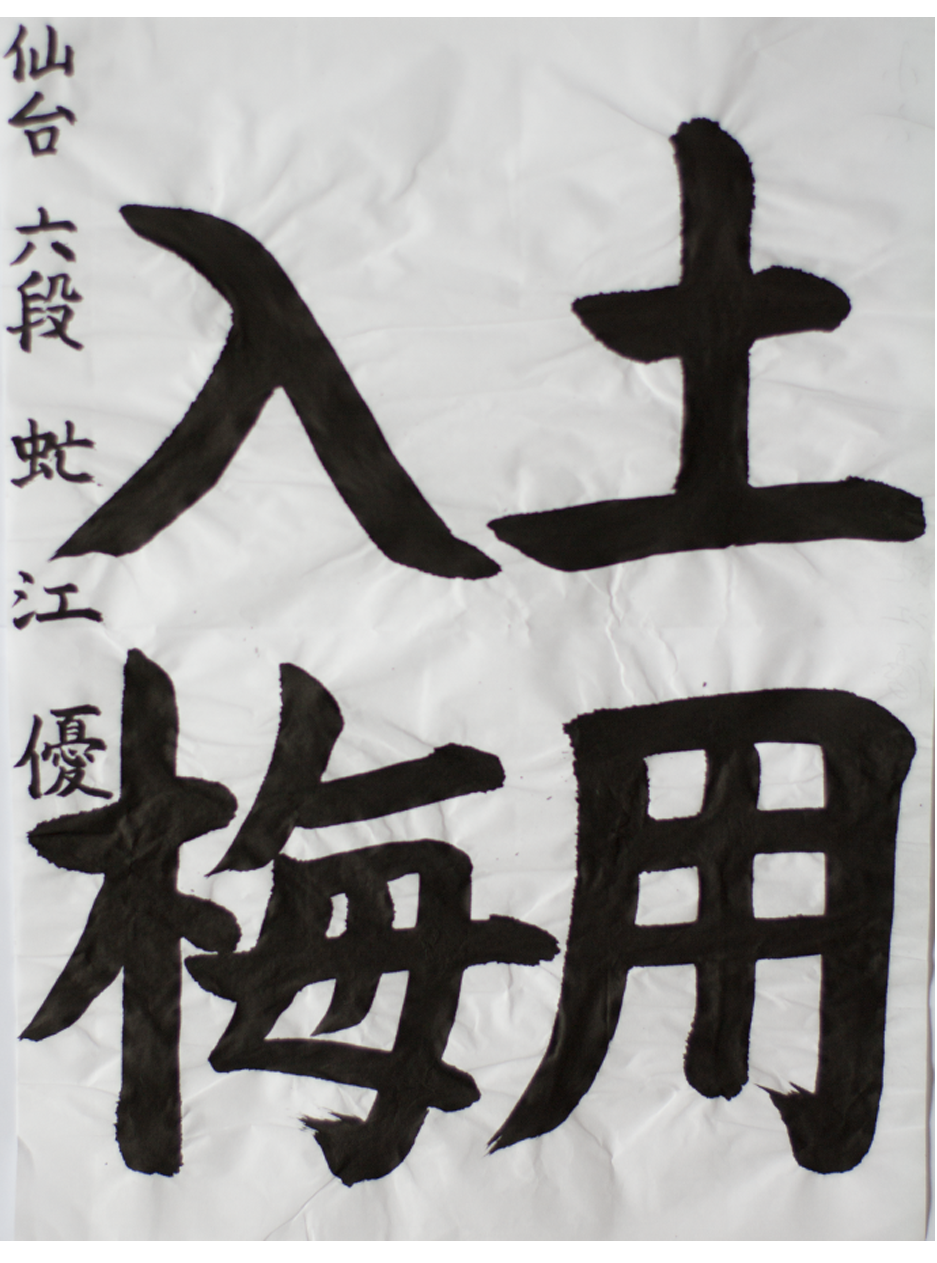 土用
入梅
仙台 六段 虻江 優